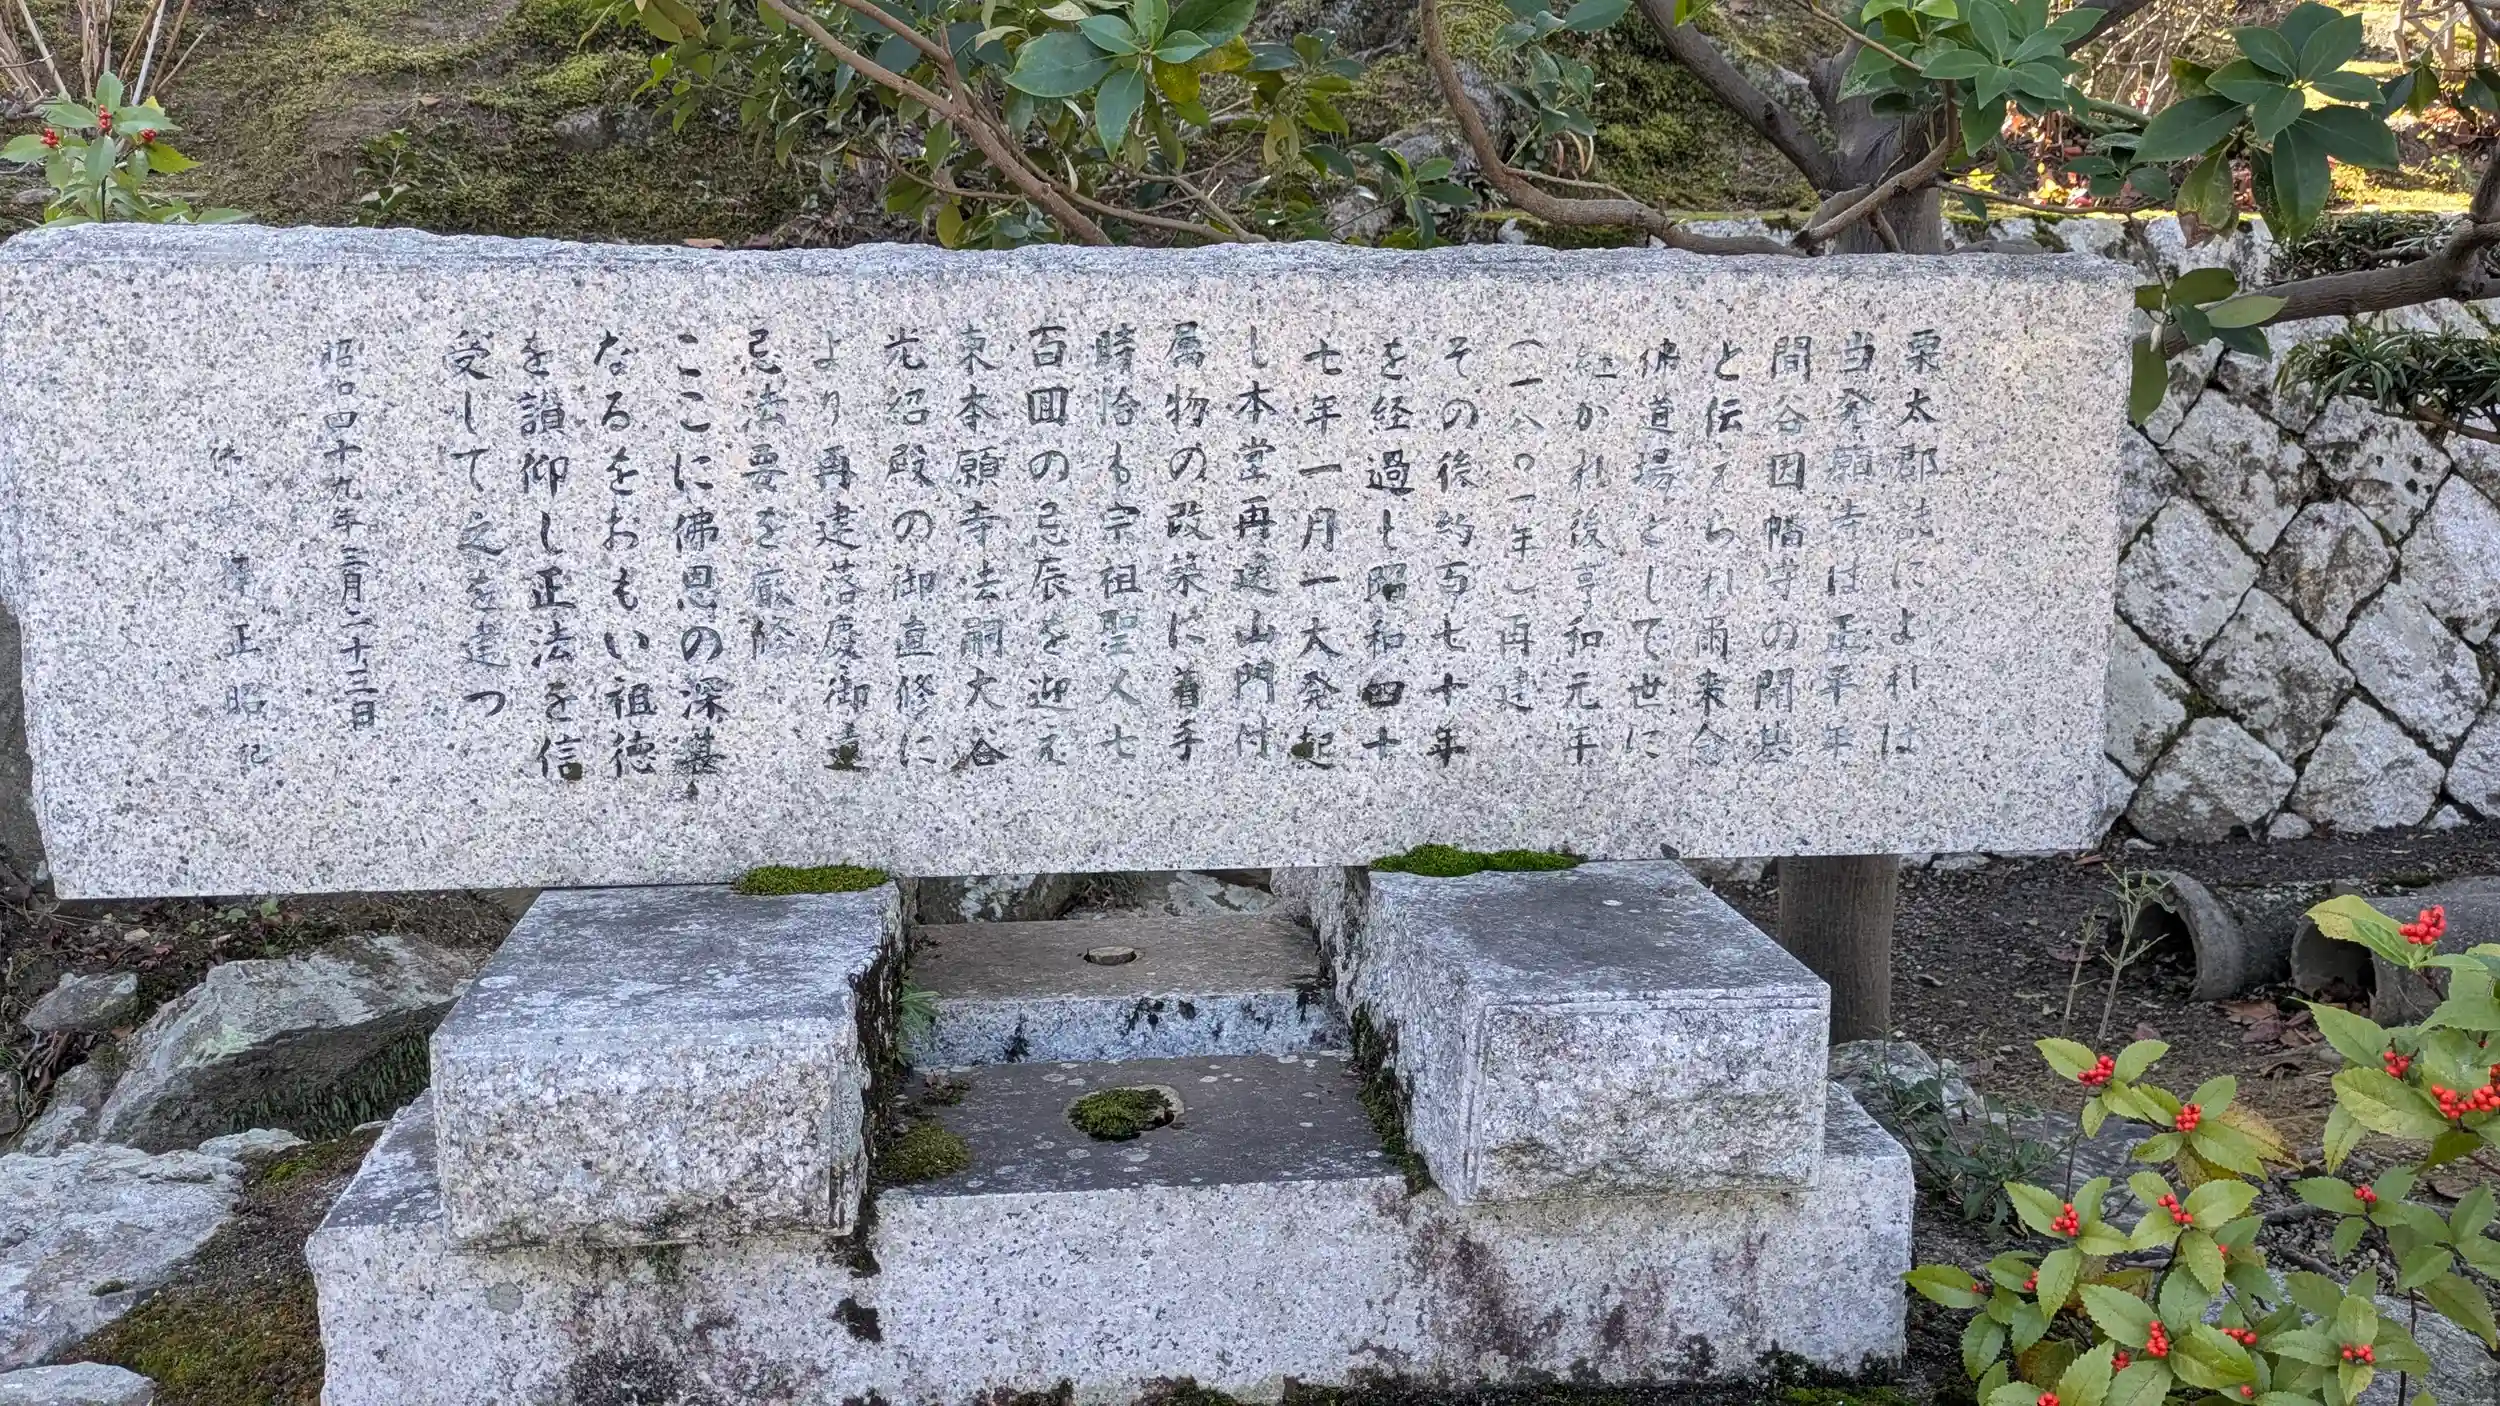 栗太郡誌によれば
当発願寺は正平年
間谷因幡守の開基
と伝えられ雨来念
佛道場として世に
ひかれ後享和元年
(一八〇一年)再建
その後約百七十年
を経過し昭和四十
七年一月一大発起
し本堂再建山門付
属物の改築に着手
時恰も宗祖聖人七
百回の忌辰を迎え
東本願寺法嗣大谷
光紹殿の御直修に
より再建落慶御遠
忌法要を厳修
ここに佛恩の深甚
なるをおもい祖徳
を讃仰し正法を信
受して之を建つ
昭和四十九年三月二十三日
正昭 記